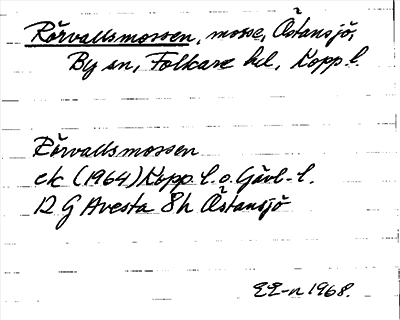 Rörvallsmossen, mosse, Östansjö,
By sn, Folkare hd, Kopp. l.
Rörvallsmossen
ek (1964) Kopp. l. o. Gävl. l.
12 G Avesta 8h Östansjö
EE-n 1968.